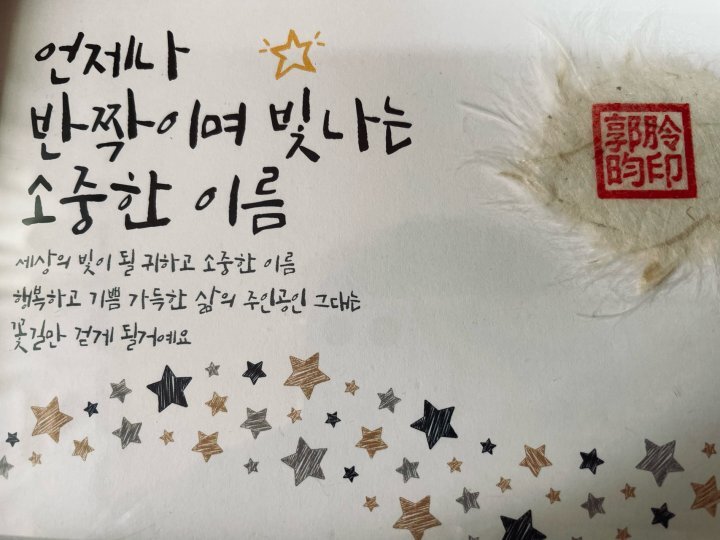 언제나
반짝이며 빛나는
소중한 이름
세상의 빛이 될 귀하고 소중한 이름
행복하고 기쁨 가득한 삶의 주인공인 그대는
꽃길만 걷게 될거예요
郭朎
昀印